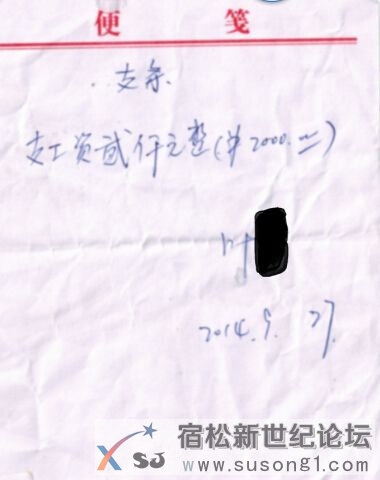 便 笺
支条
支工资贰仟元整(¥2000.00)
叶
2014.9.27.
SJ
宿松新世纪论坛
www.susong1.com